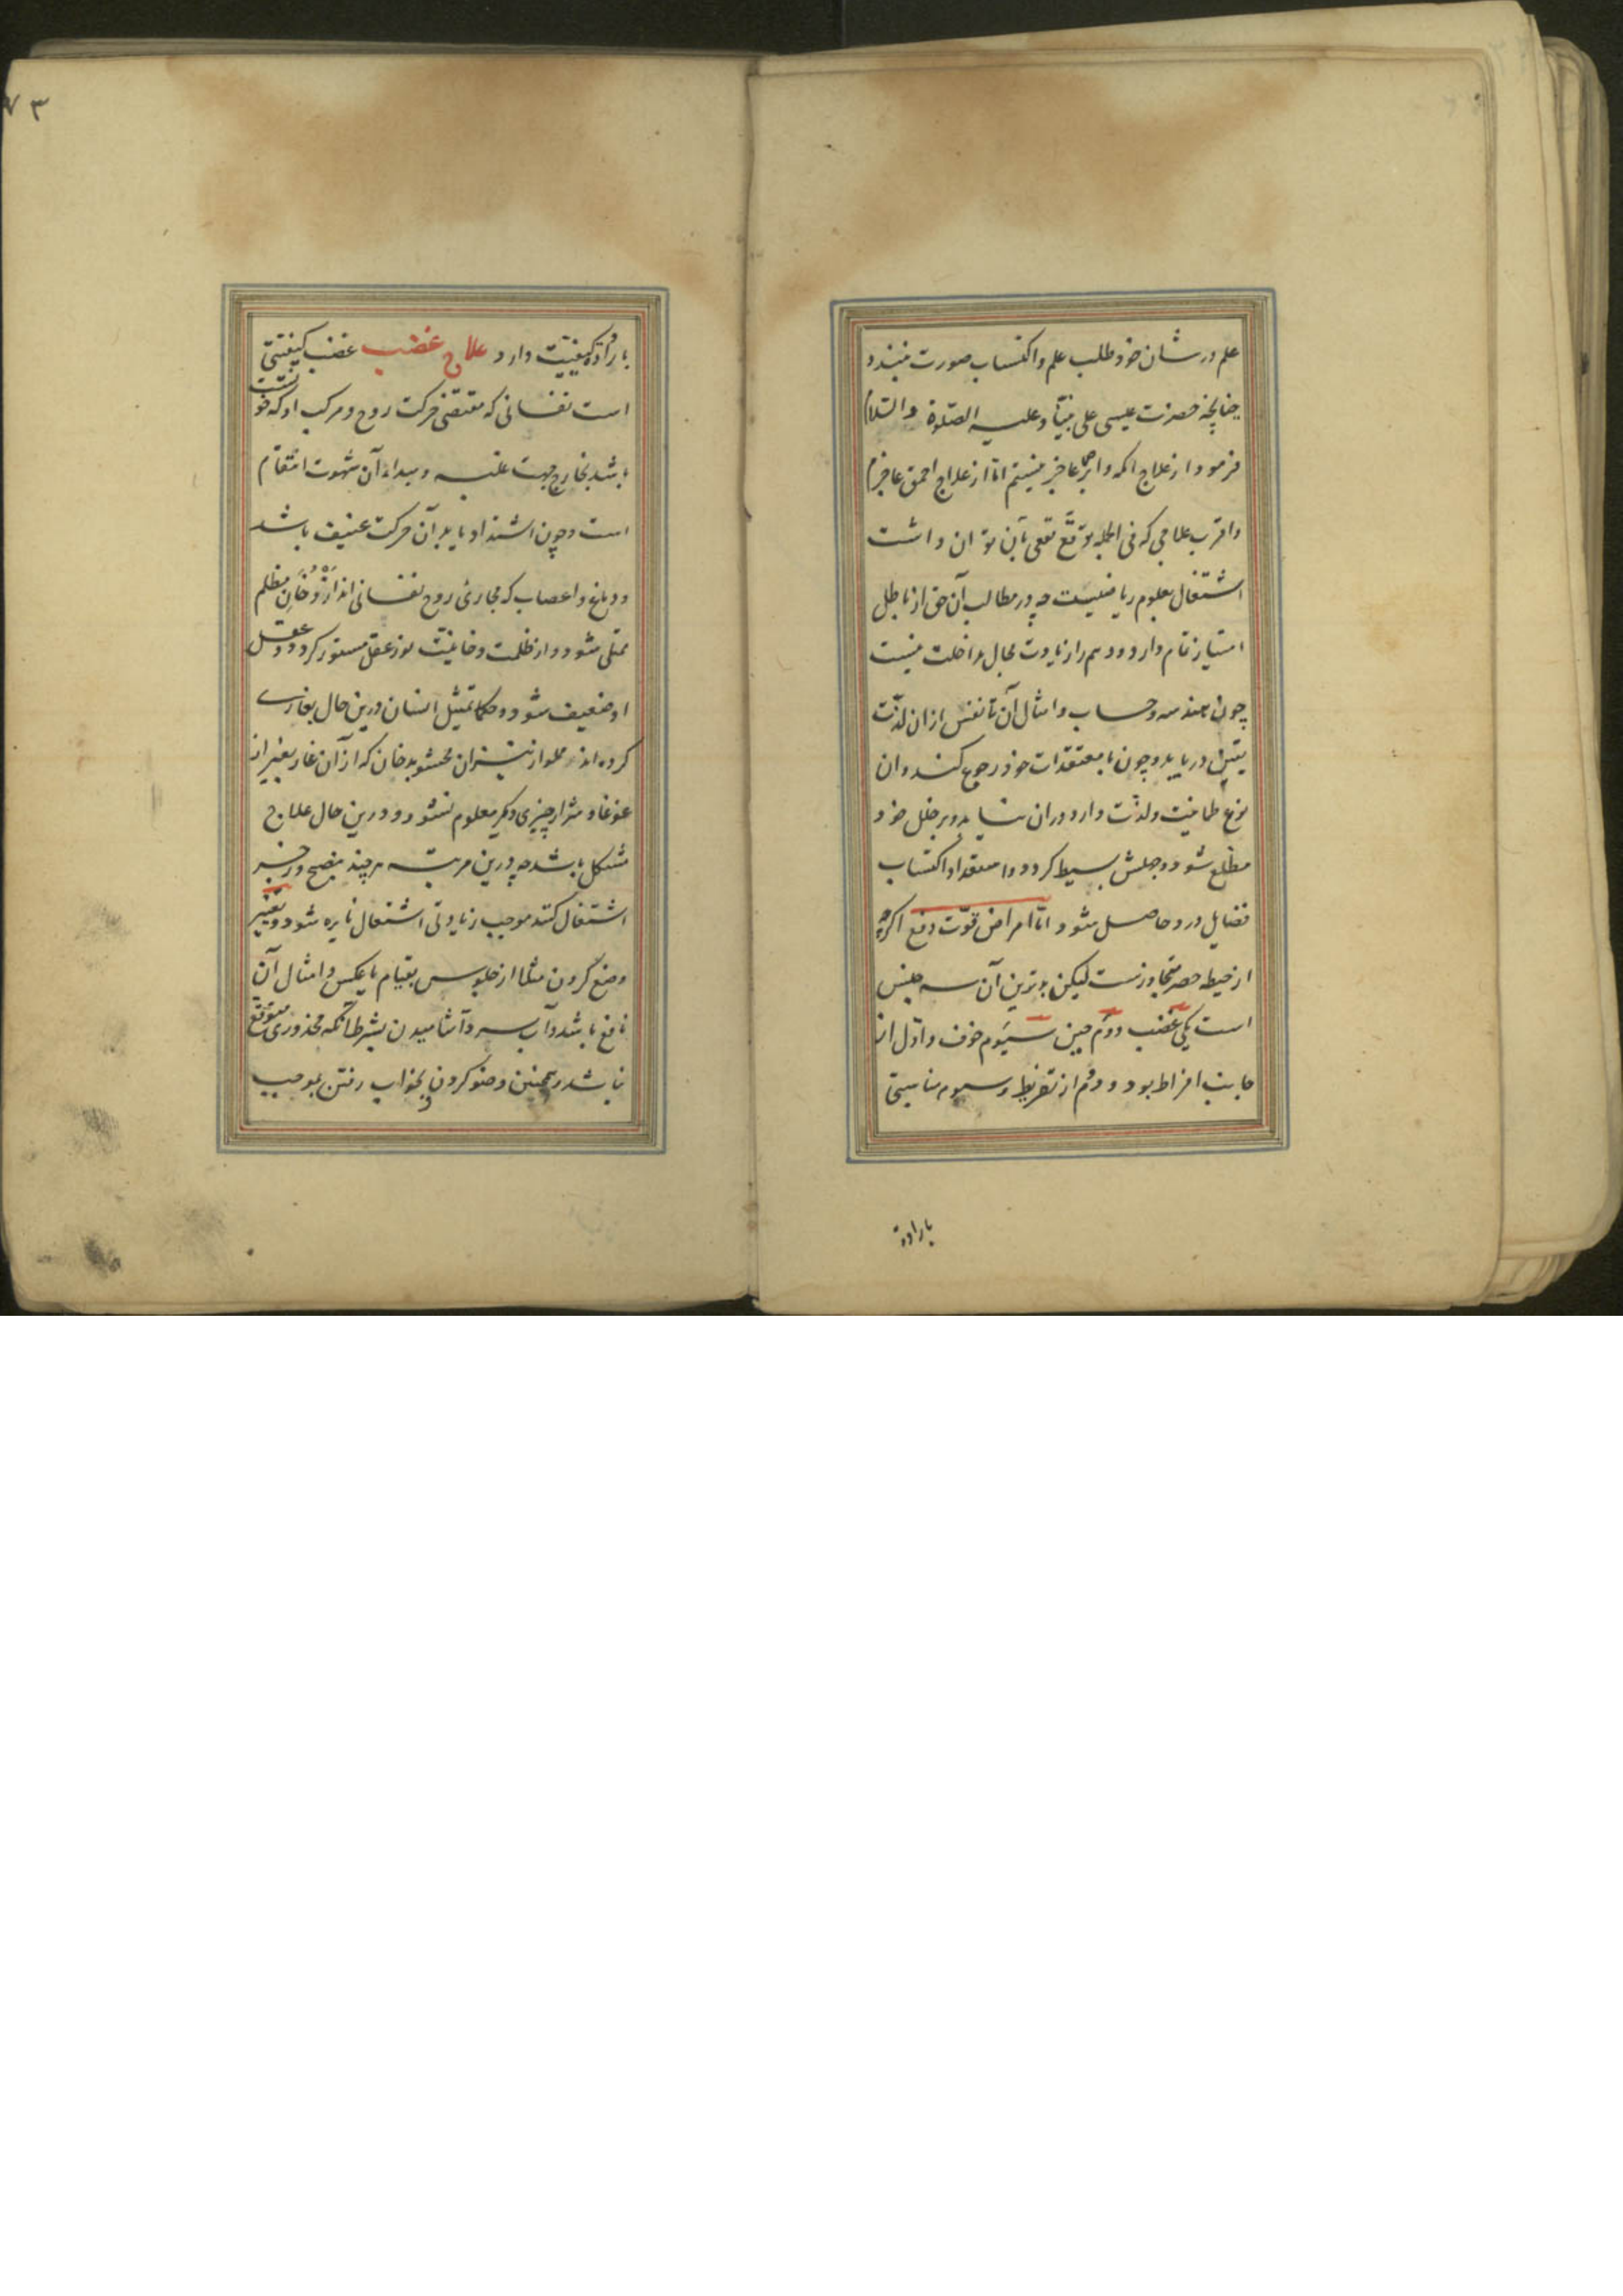 علم در شان خود طلب علم و اکتساب صورت نبندد
چنانچه حضرت عیسی علی نبیّنا و علیه الصّلوة والسّلام
فرمود از علاج اکمه و ابرص عاجز نیستم امّا از علاج احمق عاجزم
و اقرب علاجی که فی الجمله توقّع نفعی بآن توان داشت
اشتغال بعلوم ریاضیست چه در مطالب آن حق از باطل
امتیاز تمام دارد و وهم را زیادت مجال مداخلت نیست
چون هندسه و حساب و امثال آن تا نفس از ان لذّت
یقین دریابد و چون با معتقدات خود رجوع کند و ان
نوع طمانیت و لذّت دارد در ان نیابد بر خلل خود
مطّلع شود و جهلش بسیط کردد و استعداد اکتساب
فضایل درو حاصل شود و امّا امراض قوّت دفع اکرچه
از حیطه حصر متجاوزست لیکن بدترین آن سه جنس
است یکی غضب دوّم جبن سیّوم خوف و اوّل از
جانب افراط بود و دوّم از تفریط و سیوم مناسبتی
بارادة
٧٣
باردأة کیفیّت دارد علاج غضب غضب کیفیّتی
است نفسانی که مقتضی حرکت روح و مرکب او که خونست
باشد بخارج جهت غلبه و مبداء آن شهوت انتقام
است و چون اشتداد یابد آن حرکت عنیف باشد
و دماغ و اعصاب که مجاری روح نفسانی اند از دخان مظلم
ممتلی شود و از ظلمت دخانیّت نور عقل مستور کردد و عقل
او ضعیف شود و حکما تمثیل انسان درین حال بغاری
کرده اند مملو از نیران محشو بدخان که از آن غار بغیر از
غوغا و شرار چیزی دیکر معلوم نشود و درین حال علاج
مشکل باشد چه درین مرتبه هر چند بنصح و زجر
اشتغال کنند موجب زیادتی اشتعال نایره شود و تغییر
وضع کردن مثلا از جلوس بقیام یا عکس و امثال آن
نافع باشد و آب سرد آشامیدن بشرط آنکه محذوری متوقّع
نباشد و همچنین وضو کردن و بخواب رفتن بموجب